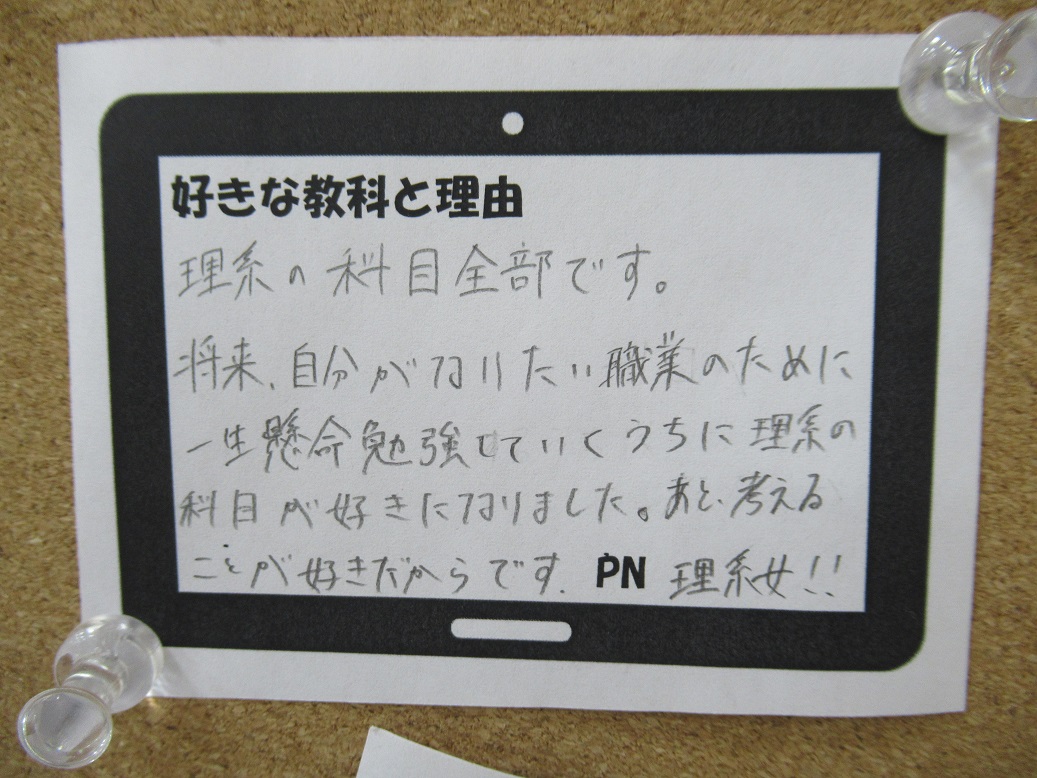 好きな教科と理由
理系の科目全部です。
将来、自分がなりたい職業のために
一生懸命勉強していくうちに理系の
科目が好きになりました。あと、考える
ことが好きだからです. PN 理系女!!